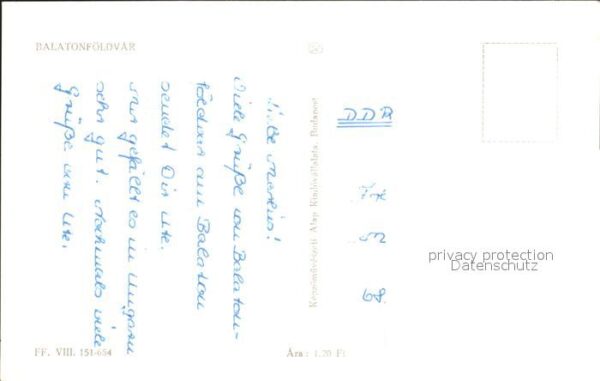 BALATONFÖLDVÁR
Viele Grüße von Balaton-
földvar am Balaton
sendet Dir Ute.
Mir gefällt es in Ungarn
sehr gut. Nochmals viele
Grüße von Ute.
Képzőművészeti Alap Kiadóvállalata, Budapest
DDR
68
privacy protection
Datenschutz
FF. VIII. 151-654
Ára: 1.20 Ft